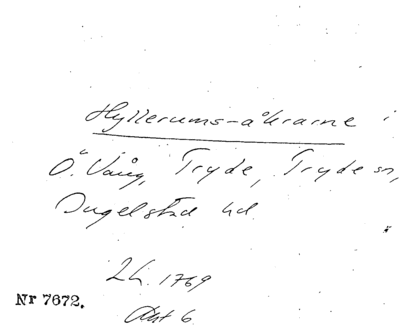 Hyllerums-åkrarne i
Ö. Vång, Tryde, Tryde sn,
Ingelstad hd
LH. 1769
Nr 7672.
Akt 6